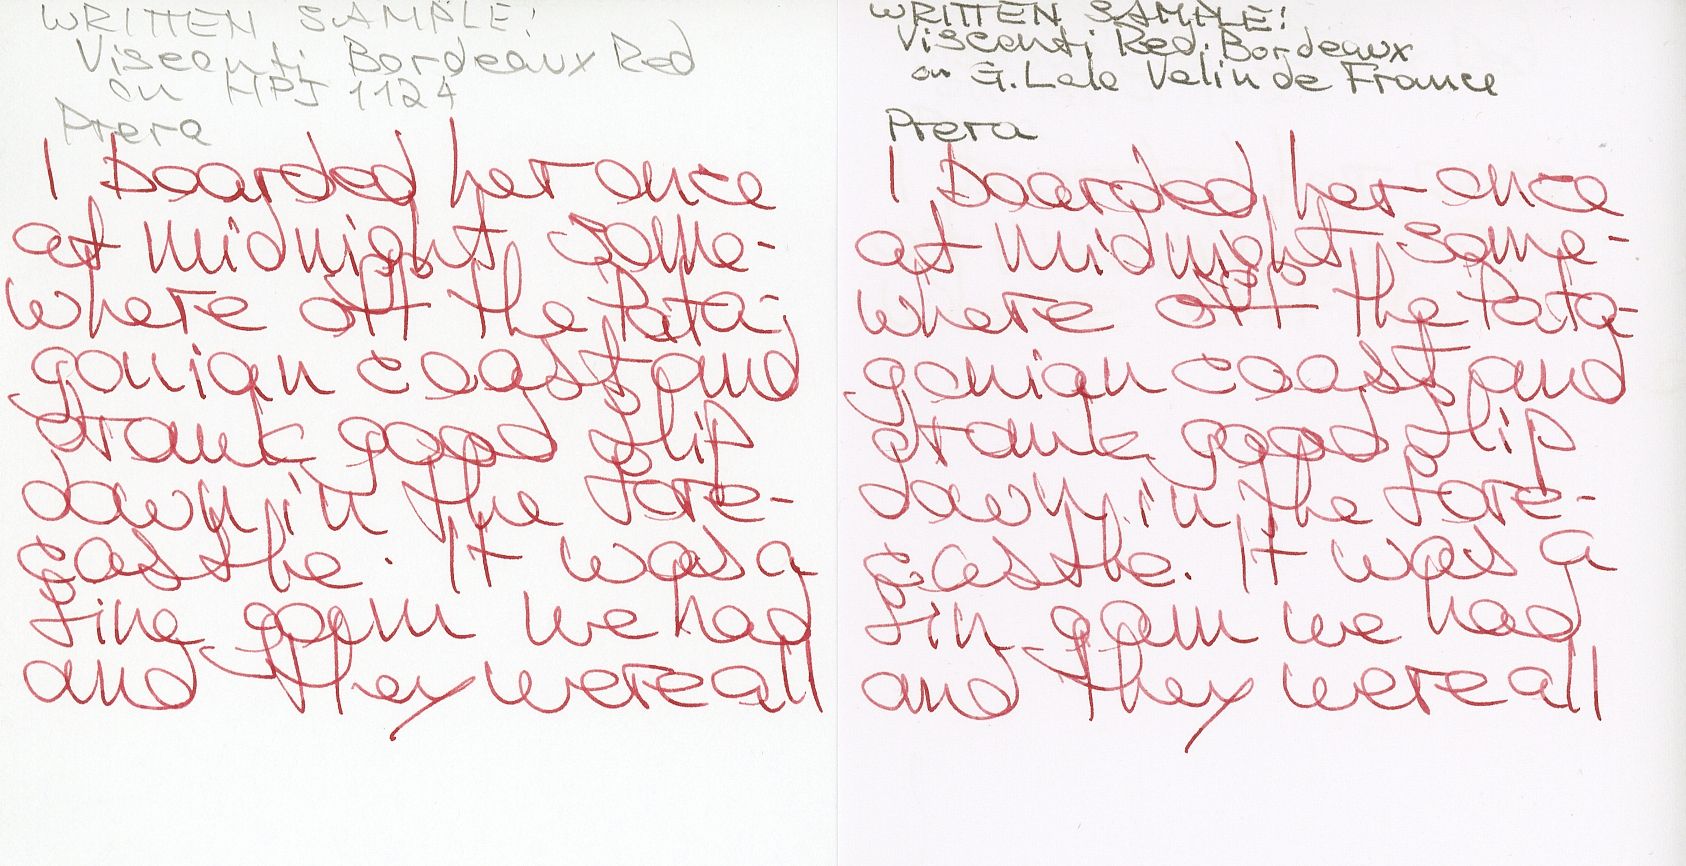 WRITTEN SAMPLE!
Visconti Bordeaux Red
on HPJ 1124
Prera
I boarded her once
at midnight some-
where off the Pata-
gonian coast and
drank good flip
down in the fore-
castle. It was a
fine gam we had
and they were all
WRITTEN SAMPLE!
Visconti Red. Bordeaux
on G. Lalo Velin de France
Prera
I boarded her once
at midnight some-
where off the Pata-
gonian coast and
drank good flip
down in the fore-
castle. It was a
fin gam we had
and they were all